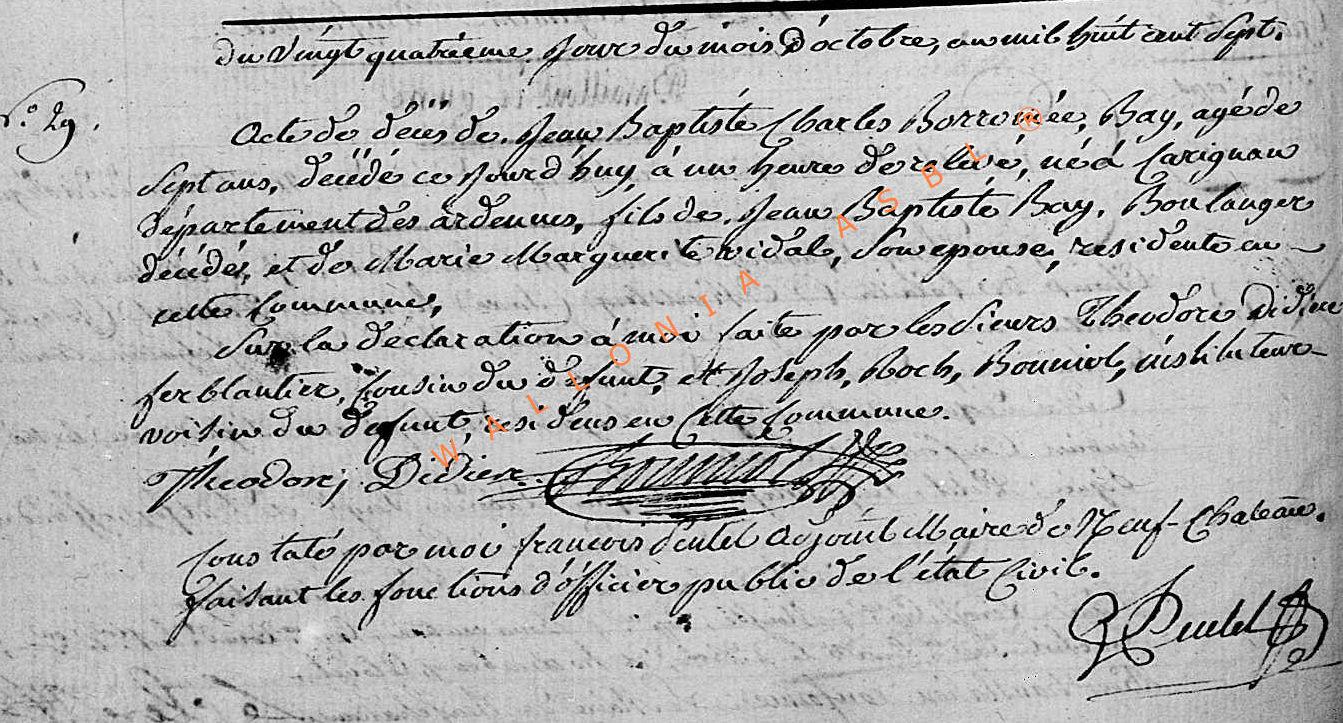 du Vingt quatrieme Jour du mois d'octobre, an mil huit cent Sept.
N.° 29.
Acte de décès de Jean Baptiste Charles Borromée, Bay, agé de
Sept ans, décédé ce Jourd'huy, à un heure de relevé, né à Carignan
département des ardennes, fils de Jean Baptiste Bay, Boulanger
décédés, et de Marie Marguerite vidal, Son epouse, residente en
cette Commune,
Sur la déclaration à moi faite par les Sieurs Theodore Didier
ferblantier, Cousin du defunt, et Joseph, Roch, Bonniol, instituteur
voisin du defunt residens en Cette Commune.
Theodore Didier
Constaté par moi francois Dutel Adjoint Maire de Neuf-Chateau.
faisant les fonctions d'officier public de l'état Civil.
WALLONIA ASBL ®